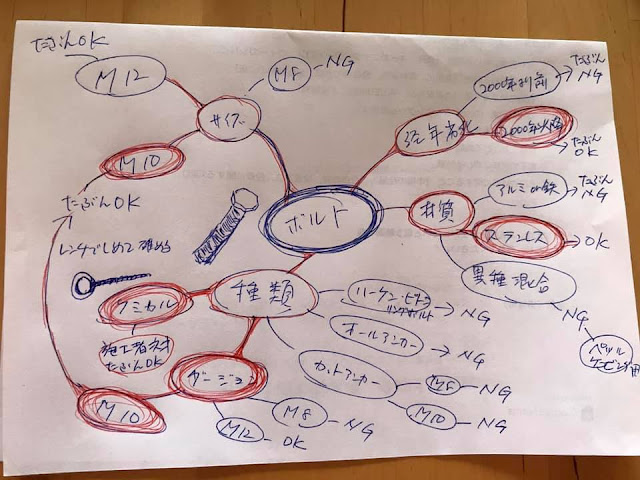 たぶんOK
M12
M8
NG
サイズ
M10
たぶんOK
レンチでしめて確める
ボルト
経年劣化
2000年以前
たぶん
NG
2000年以降
たぶん
OK
材質
アルミor鉄
たぶん
NG
ステンレス
OK
異種混合
NG
ペツル
ケービング用
種類
ケミカル
施工者次オ
たぶんOK
M10
M12
OK
M8
NG
NG
オールアンカー
NG
カットアンカー
M8
NG
M10
NG